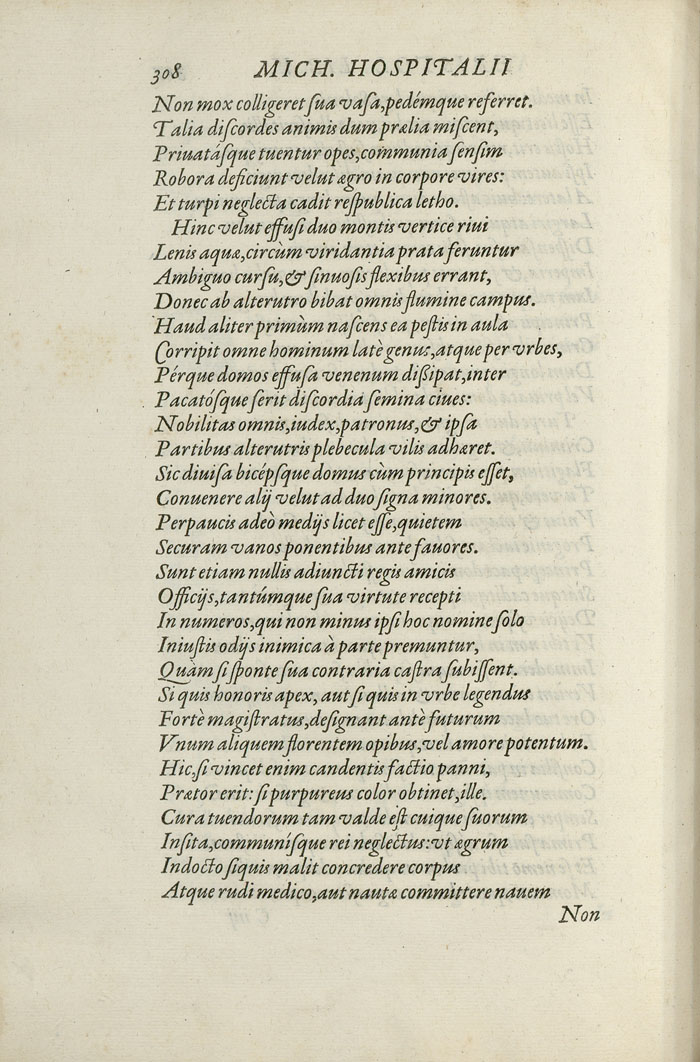 308 MICH. HOSPITALII
Non mox colligeret ſua vaſa,pedémque referret.
Talia diſcordes animis dum prælia miſcent,
Priuatáſque tuentur opes,communia ſenſim
Robora deficiunt velut ægro in corpore vires:
Et turpi neglecta cadit reſpublica letho.
Hinc velut effuſi duo montis vertice riui
Lenis aquæ,circùm viridantia prata feruntur
Ambiguo curſu,& ſinuoſis flexibus errant,
Donec ab alterutro bibat omnis flumine campus.
Haud aliter primùm naſcens ea peſtis in aula
Corripit omne hominum latè genus,atque per vrbes,
Pérque domos effuſa venenum diſsipat,inter
Pacatóſque ſerit diſcordia ſemina ciues:
Nobilitas omnis,iudex,patronus,& ipſa
Partibus alterutris plebecula vilis adhæret.
Sic diuiſa bicépſque domus cùm principis eſſet,
Conuenere alij velut ad duo ſigna minores.
Perpaucis adeò medijs licet eſſe,quietem
Securam vanos ponentibus ante fauores.
Sunt etiam nullis adiuncti regis amicis
Officijs,tantúmque ſua virtute recepti
In numeros,qui non minus ipſi hoc nomine ſolo
Iniuſtis odijs inimica à parte premuntur,
Quàm ſi ſponte ſua contraria caſtra ſubiſſent.
Si quis honoris apex, aut ſi quis in vrbe legendus
Fortè magiſtratus,deſignant antè futurum
Vnum aliquem florentem opibus,vel amore potentum.
Hic,ſi vincet enim candentis factio panni,
Prætor erit: ſi purpureus color obtinet,ille.
Cura tuendorum tam valde eſt cuique ſuorum
Inſita,communíſque rei neglectus:vt ægrum
Indocto ſiquis malit concredere corpus
Atque rudi medico,aut nautæ committere nauem
Non